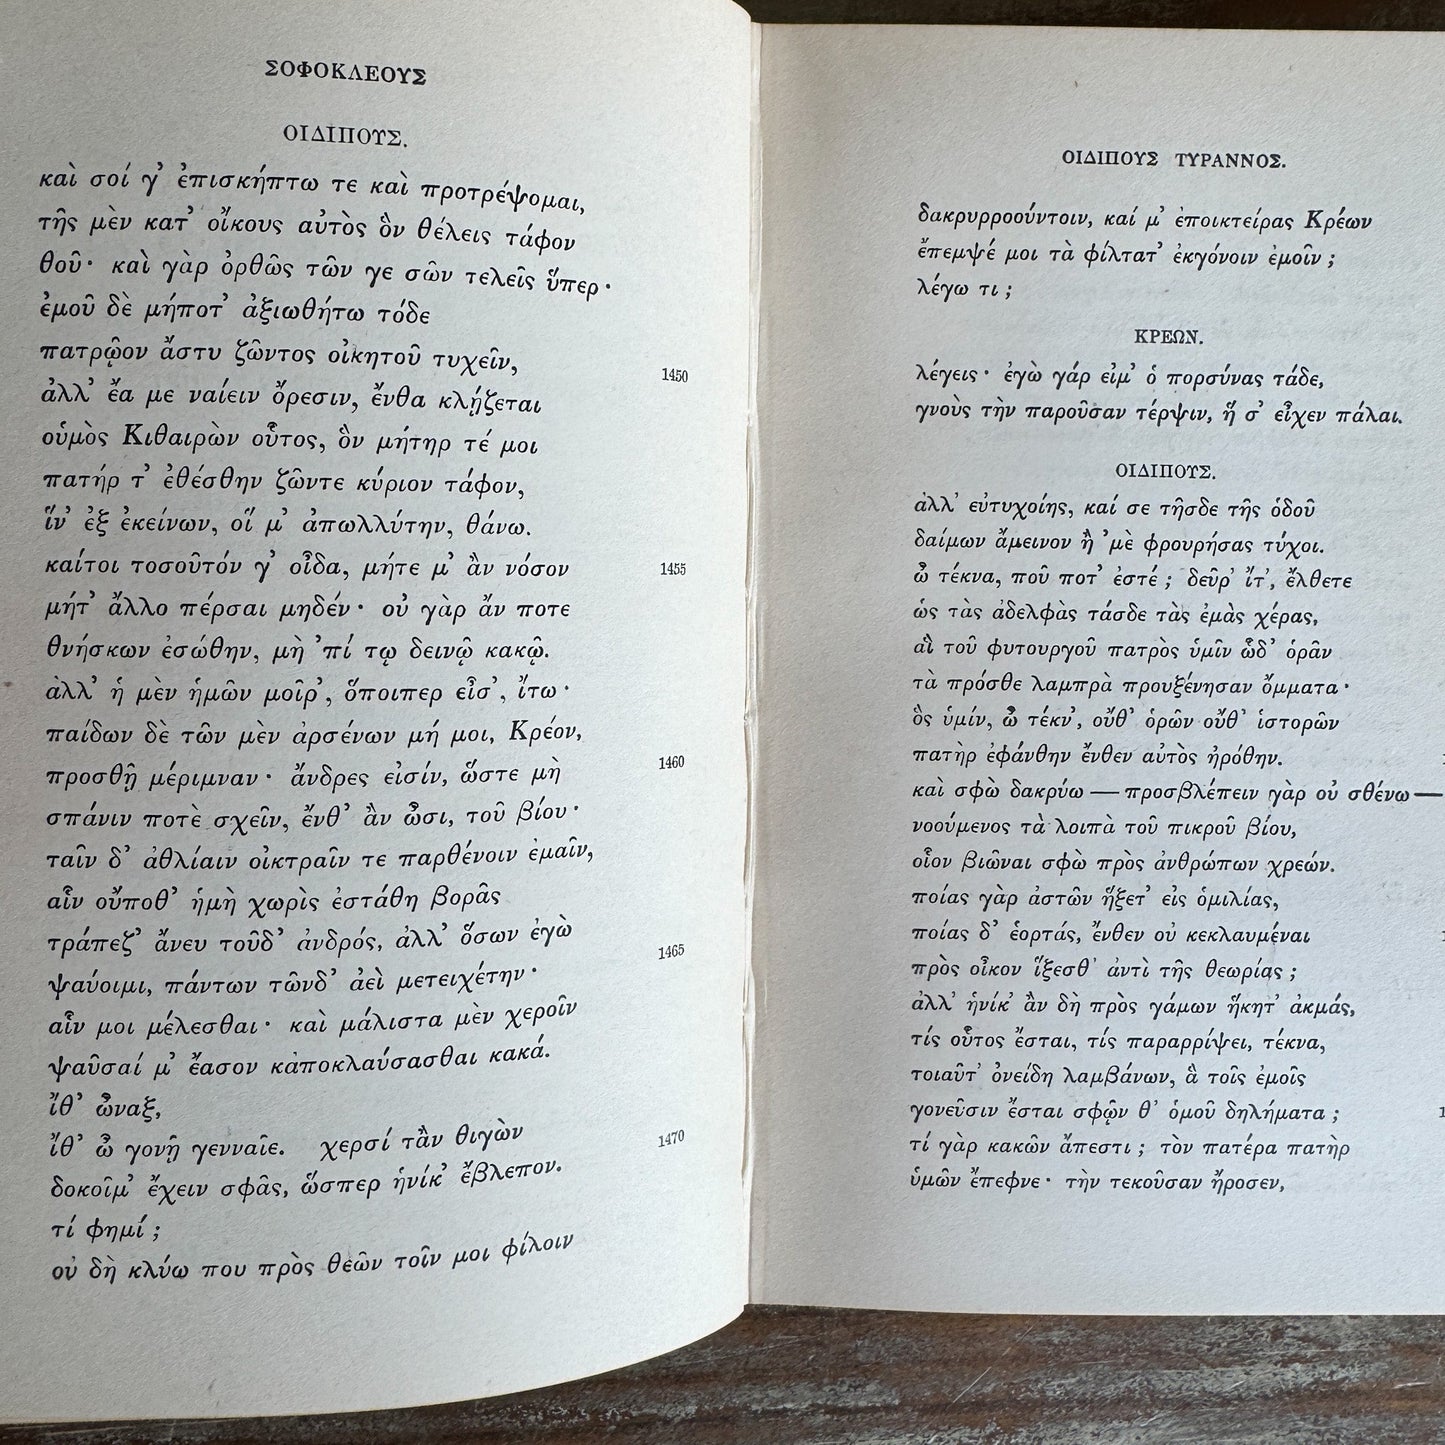 ΣΟΦΟΚΛΕΟΥΣ
ΟΙΔΙΠΟΥΣ.
καὶ σοί γ᾽ ἐπισκήπτω τε καὶ προτρέψομαι,
τῆς μὲν κατ᾽ οἴκους αὐτὸς ὃν θέλεις τάφον
θοῦ· καὶ γὰρ ὀρθῶς τῶν γε σῶν τελεῖς ὕπερ·
ἐμοῦ δὲ μήποτ᾽ ἀξιωθήτω τόδε
πατρῷον ἄστυ ζῶντος οἰκητοῦ τυχεῖν, 1450
ἀλλ᾽ ἔα με ναίειν ὄρεσιν, ἔνθα κλῄζεται
οὑμὸς Κιθαιρὼν οὗτος, ὃν μήτηρ τέ μοι
πατήρ τ᾽ ἐθέσθην ζῶντε κύριον τάφον,
ἵν᾽ ἐξ ἐκείνων, οἵ μ᾽ ἀπωλλύτην, θάνω.
καίτοι τοσοῦτόν γ᾽ οἶδα, μήτε μ᾽ ἂν νόσον 1455
μήτ᾽ ἄλλο πέρσαι μηδέν· οὐ γὰρ ἄν ποτε
θνήσκων ἐσώθην, μὴ ᾽πί τῳ δεινῷ κακῷ.
ἀλλ᾽ ἡ μὲν ἡμῶν μοῖρ᾽, ὅποιπερ εἶσ᾽, ἴτω·
παίδων δὲ τῶν μὲν ἀρσένων μή μοι, Κρέον,
προσθῇ μέριμναν· ἄνδρες εἰσίν, ὥστε μὴ 1460
σπάνιν ποτὲ σχεῖν, ἔνθ᾽ ἂν ὦσι, τοῦ βίου·
ταῖν δ᾽ ἀθλίαιν οἰκτραῖν τε παρθένοιν ἐμαῖν,
αἷν οὔποθ᾽ ἡμὴ χωρὶς ἐστάθη βορᾶς
τράπεζ᾽ ἄνευ τοῦδ᾽ ἀνδρός, ἀλλ᾽ ὅσων ἐγὼ
ψαύοιμι, πάντων τῶνδ᾽ ἀεὶ μετειχέτην· 1465
αἷν μοι μέλεσθαι· καὶ μάλιστα μὲν χεροῖν
ψαῦσαί μ᾽ ἔασον κἀποκλαύσασθαι κακά.
ἴθ᾽ ὦναξ,
ἴθ᾽ ὦ γονῇ γενναῖε. χερσί τἂν θιγὼν
δοκοῖμ᾽ ἔχειν σφᾶς, ὥσπερ ἡνίκ᾽ ἔβλεπον. 1470
τί φημί;
οὐ δὴ κλύω που πρὸς θεῶν τοῖν μοι φίλοιν
ΟΙΔΙΠΟΥΣ ΤΥΡΑΝΝΟΣ.
δακρυρροούντοιν, καί μ᾽ ἐποικτείρας Κρέων
ἔπεμψέ μοι τὰ φίλτατ᾽ ἐκγόνοιν ἐμοῖν;
λέγω τι;
ΚΡΕΩΝ.
λέγεις· ἐγὼ γάρ εἰμ᾽ ὁ πορσύνας τάδε,
γνοὺς τὴν παροῦσαν τέρψιν, ἥ σ᾽ εἶχεν πάλαι.
ΟΙΔΙΠΟΥΣ.
ἀλλ᾽ εὐτυχοίης, καί σε τῆσδε τῆς ὁδοῦ
δαίμων ἄμεινον ἢ ᾽μὲ φρουρήσας τύχοι.
ὦ τέκνα, ποῦ ποτ᾽ ἐστέ; δεῦρ᾽ ἴτ᾽, ἔλθετε
ὡς τὰς ἀδελφὰς τάσδε τὰς ἐμὰς χέρας,
αἳ τοῦ φυτουργοῦ πατρὸς ὑμῖν ὧδ᾽ ὁρᾶν
τὰ πρόσθε λαμπρὰ προυξένησαν ὄμματα·
ὃς ὑμίν, ὦ τέκν᾽, οὔθ᾽ ὁρῶν οὔθ᾽ ἱστορῶν
πατὴρ ἐφάνθην ἔνθεν αὐτὸς ἠρόθην.
καὶ σφὼ δακρύω — προσβλέπειν γὰρ οὐ σθένω —
νοούμενος τὰ λοιπὰ τοῦ πικροῦ βίου,
οἷον βιῶναι σφὼ πρὸς ἀνθρώπων χρεών.
ποίας γὰρ ἀστῶν ἥξετ᾽ εἰς ὁμιλίας,
ποίας δ᾽ ἑορτάς, ἔνθεν οὐ κεκλαυμέναι
πρὸς οἶκον ἵξεσθ᾽ ἀντὶ τῆς θεωρίας;
ἀλλ᾽ ἡνίκ᾽ ἂν δὴ πρὸς γάμων ἥκητ᾽ ἀκμάς,
τίς οὗτος ἔσται, τίς παραρρίψει, τέκνα,
τοιαῦτ᾽ ὀνείδη λαμβάνων, ἃ τοῖς ἐμοῖς
γονεῦσιν ἔσται σφῷν θ᾽ ὁμοῦ δηλήματα;
τί γὰρ κακῶν ἄπεστι; τὸν πατέρα πατὴρ
ὑμῶν ἔπεφνε· τὴν τεκοῦσαν ἤροσεν,